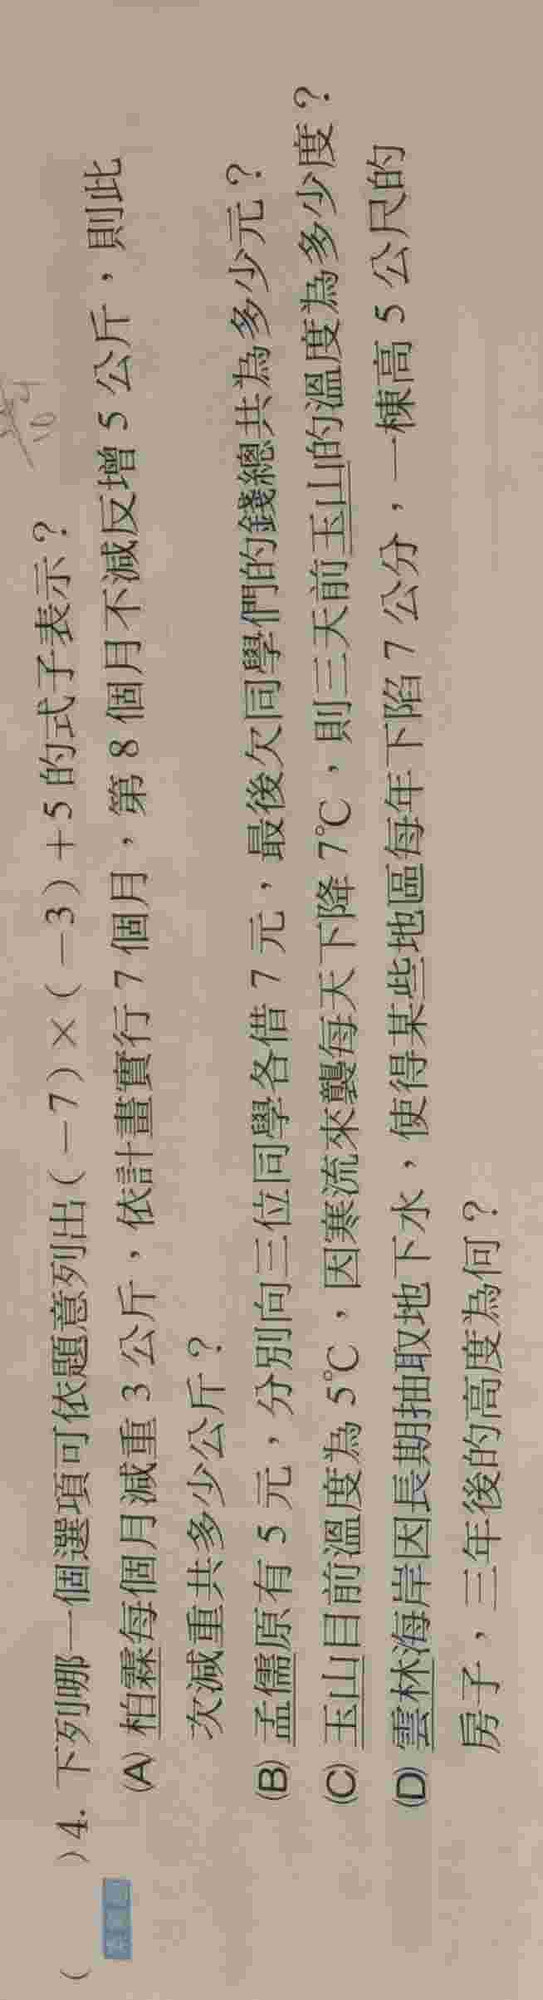 (　　) 4. 下列哪一個選項可依題意列出(－7)×(－3)＋5的式子表示？
(A) 柏霖每個月減重3公斤，依計畫實行7個月，第8個月不減反增5公斤，則此
次減重共多少公斤？
(B) 孟儒原有5元，分別向三位同學各借7元，最後欠同學們的錢總共為多少元？
(C) 玉山目前溫度為5℃，因寒流來襲每天下降7℃，則三天前玉山的溫度為多少度？
(D) 雲林海岸因長期抽取地下水，使得某些地區每年下陷7公分，一棟高5公尺的
房子，三年後的高度為何？